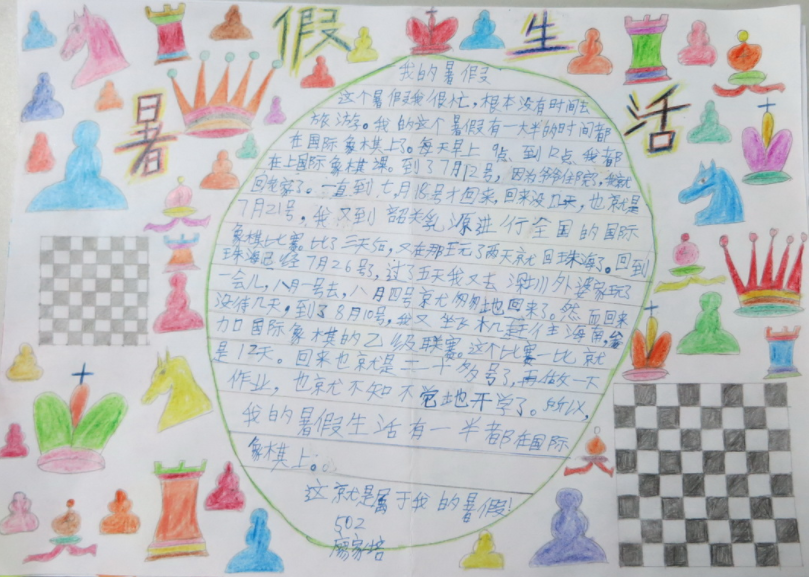 暑假生活
我的暑假
这个暑假我很忙，根本没有时间去
旅游。我的这个暑假有一大半的时间都
在国际象棋上了。每天早上9点到12点，我都
在上国际象棋课。到了7月12号，因为爷爷住院了，我就
回老家了。一直到七月18号才回来，回来没几天，也就是
7月21号，我又到韶关乳源进行全国的国际
象棋比赛。比了三天后，又在那里玩了两天就回珠海了。回到
珠海已经7月26号了，过了五天我又去深圳外婆家玩了
一会儿，八月一号去，八月四号就匆匆地回来了。然而回来
没待几天，到了8月10号，我又坐飞机去往海南，参
加国际象棋的乙级联赛。这个比赛一比就
是12天。回来也就是二十多号了，再做一下
作业，也就不知不觉地开学了。所以，
我的暑假生活有一半都在国际
象棋上。
这就是属于我的暑假！
502
廖家培